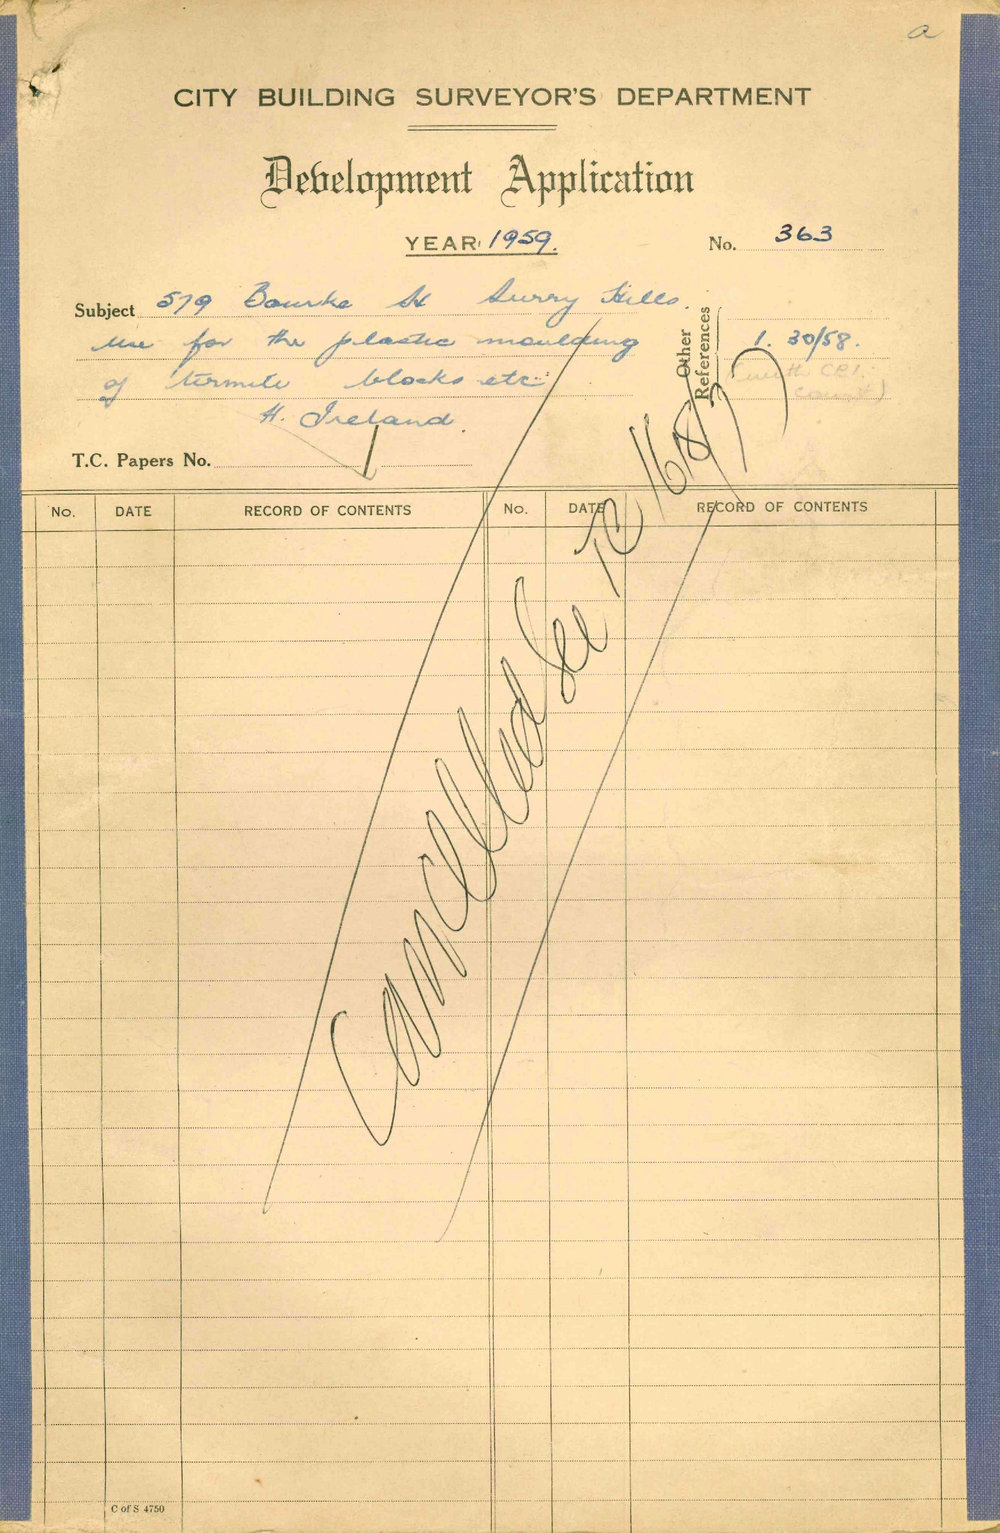 a
CITY BUILDING SURVEYOR'S DEPARTMENT
Development Application
YEAR 1959. No. 363
Subject 579 Bourke St Surry Hills.
use for the plastic moulding
of termite blocks etc.
H. Ireland.
Other References
1. 30/58.
(with CBI.
T.C. Papers No.
No. DATE RECORD OF CONTENTS No. DATE RECORD OF CONTENTS
Cancelled See TC
C of S 4750